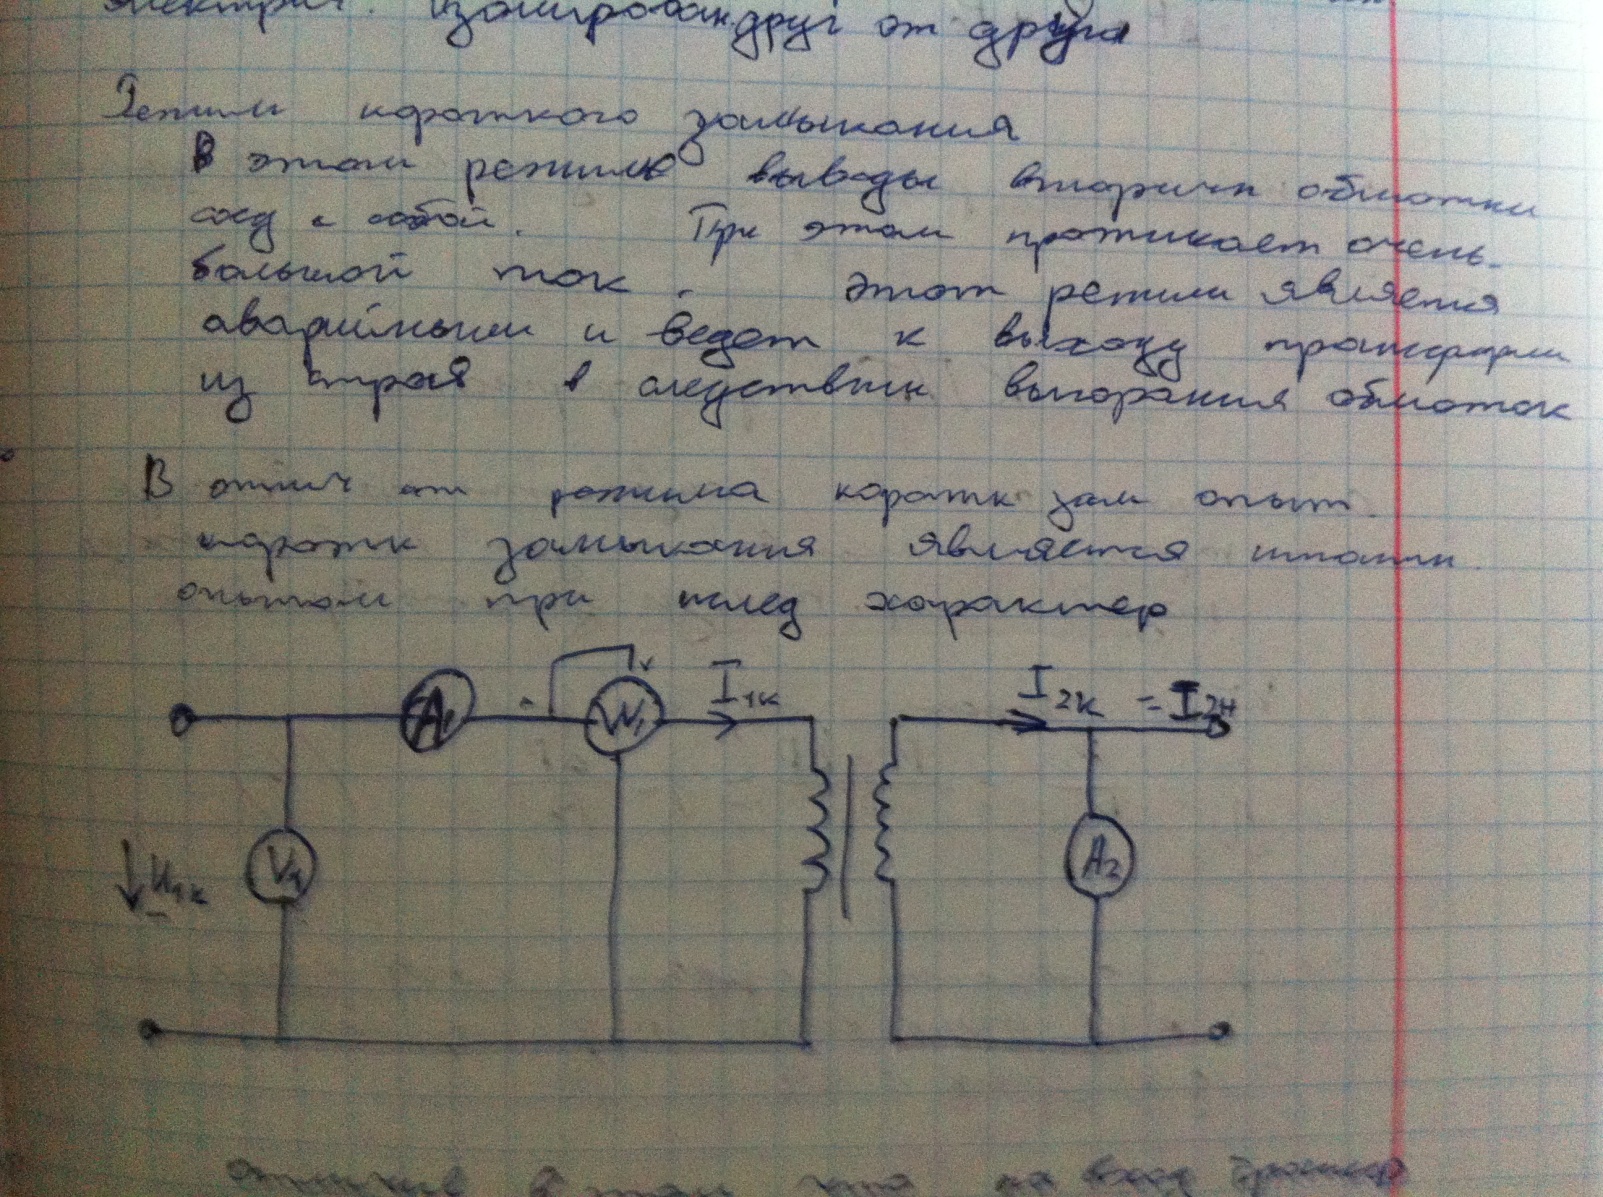 электрич. изолирован друг от друга
Режим короткого замыкания
В этом режиме выводы вторичн обмотки
соед с собой. При этом протикает очень
большой ток. Этот режим является
аварийным и ведет к выходу трансформ
из строя в следствии выгорания обмоток
В отлич от режима коротк зам опыт
коротк замыкания является штатн
опытом при исслед характер
A₁ W₁ I₁к I₂к = I₂н
U₁к V₁ A₂
отличие в том что на вход трансфор